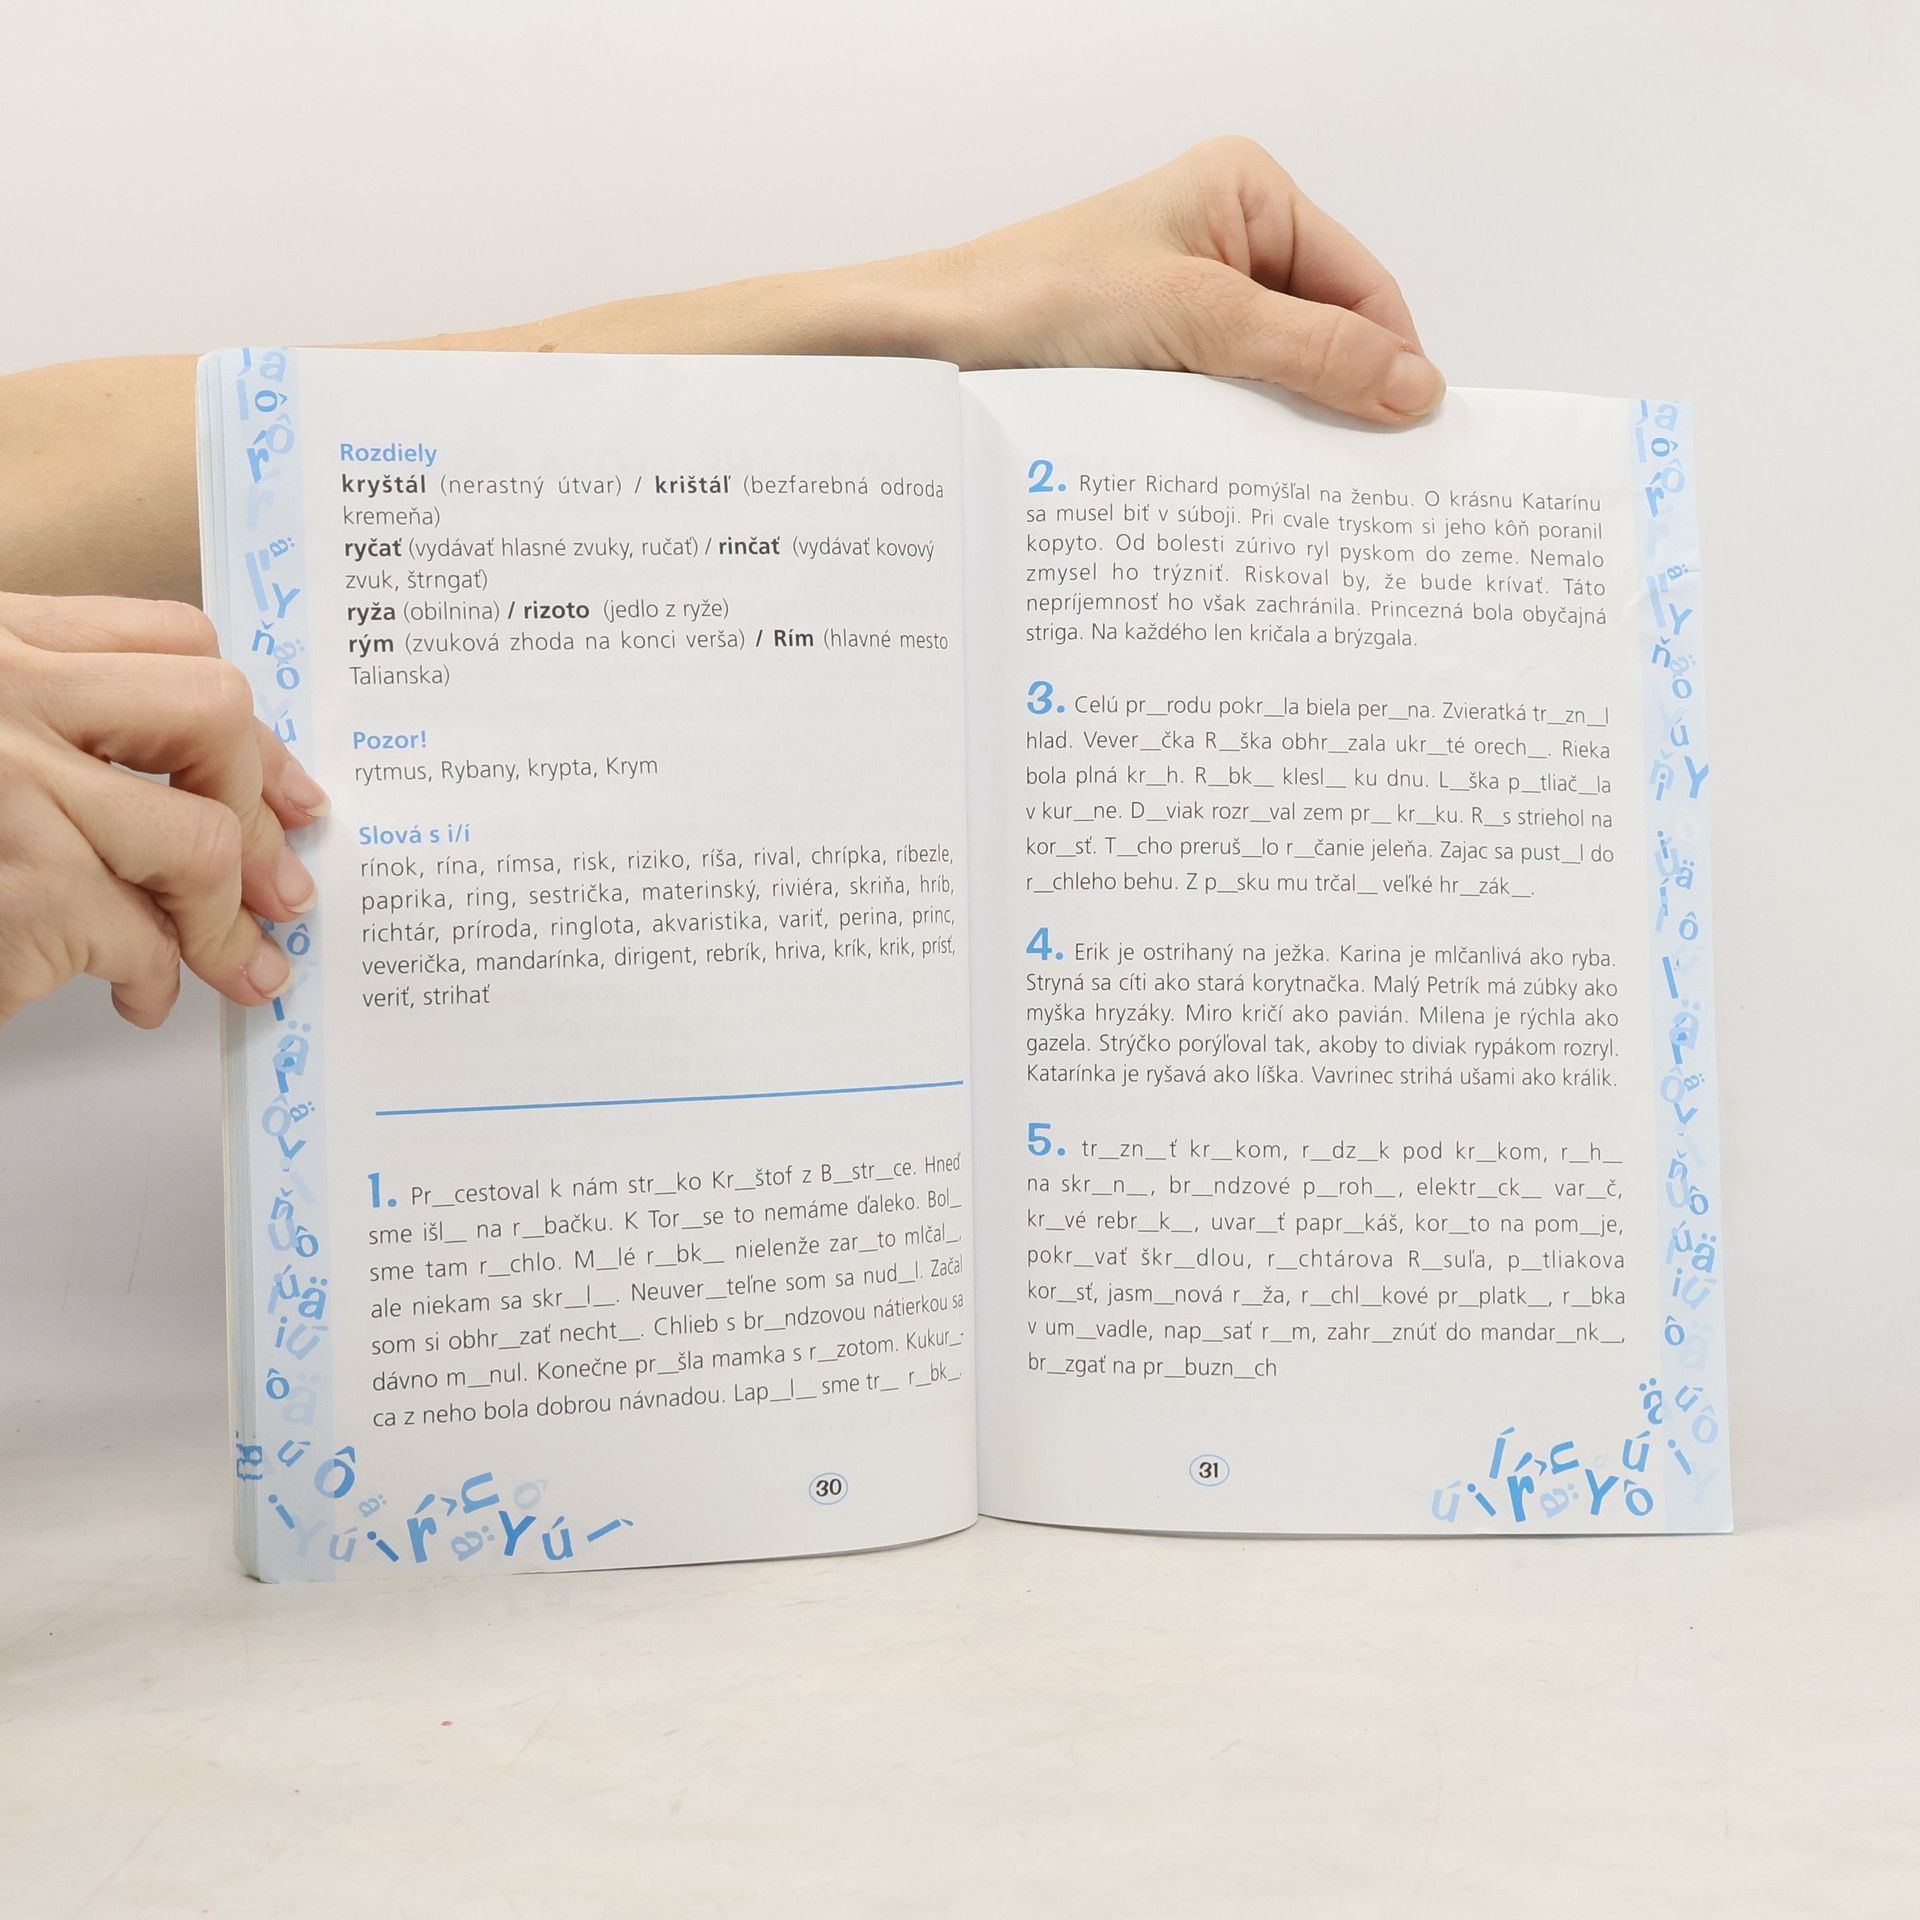 Rozdiely
kryštál (nerastný útvar) / krištáľ (bezfarebná odroda
kremeňa)
ryčať (vydávať hlasné zvuky, ručať) / rinčať (vydávať kovový
zvuk, štrngať)
ryža (obilnina) / rizoto (jedlo z ryže)
rým (zvuková zhoda na konci verša) / Rím (hlavné mesto
Talianska)
Pozor!
rytmus, Rybany, krypta, Krym
Slová s i/í
rínok, rína, rímsa, risk, riziko, ríša, rival, chrípka, ríbezle,
paprika, ring, sestrička, materinský, riviéra, skriňa, hríb,
richtár, príroda, ringlota, akvaristika, variť, perina, princ,
veverička, mandarínka, dirigent, rebrík, hriva, krík, krik, prísť,
veriť, strihať
1. Pr__cestoval k nám str__ko Kr__štof z B__str__ce. Hneď
sme išl__ na r__bačku. K Tor__se to nemáme ďaleko. Bol_
sme tam r__chlo. M__lé r__bk__ nielenže zar__to mlčal_,
ale niekam sa skr__l__. Neuver__teľne som sa nud__l. Začal
som si obhr__zať necht__. Chlieb s br__ndzovou nátierkou sa
dávno m__nul. Konečne pr__šla mamka s r__zotom. Kukur_-
ca z neho bola dobrou návnadou. Lap__l__ sme tr__ r__bk_.
30
2. Rytier Richard pomýšľal na ženbu. O krásnu Katarínu
sa musel biť v súboji. Pri cvale tryskom si jeho kôň poranil
kopyto. Od bolesti zúrivo ryl pyskom do zeme. Nemalo
zmysel ho trýzniť. Riskoval by, že bude krívať. Táto
nepríjemnosť ho však zachránila. Princezná bola obyčajná
striga. Na každého len kričala a brýzgala.
3. Celú pr__rodu pokr__la biela per__na. Zvieratká tr__zn__l
hlad. Vever__čka R__ška obhr__zala ukr__té orech__. Rieka
bola plná kr__h. R__bk__ klesl__ ku dnu. L__ška p__tliač__la
v kur__ne. D__viak rozr__val zem pr__ kr__ku. R__s striehol na
kor__sť. T__cho preruš__lo r__čanie jeleňa. Zajac sa pust__l do
r__chleho behu. Z p__sku mu trčal__ veľké hr__zák__.
4. Erik je ostrihaný na ježka. Karina je mlčanlivá ako ryba.
Stryná sa cíti ako stará korytnačka. Malý Petrík má zúbky ako
myška hryzáky. Miro kričí ako pavián. Milena je rýchla ako
gazela. Strýčko porýľoval tak, akoby to diviak rypákom rozryl.
Katarínka je ryšavá ako líška. Vavrinec strihá ušami ako králik.
5. tr__zn__ť kr__kom, r__dz__k pod kr__kom, r__h__
na skr__n__, br__ndzové p__roh__, elektr__ck__ var__č,
kr__vé rebr__k__, uvar__ť papr__káš, kor__to na pom__je,
pokr__vať škr__dlou, r__chtárova R__suľa, p__tliakova
kor__sť, jasm__nová r__ža, r__chl__kové pr__platk__, r__bka
v um__vadle, nap__sať r__m, zahr__znúť do mandar__nk__,
br__zgať na pr__buzn__ch
31